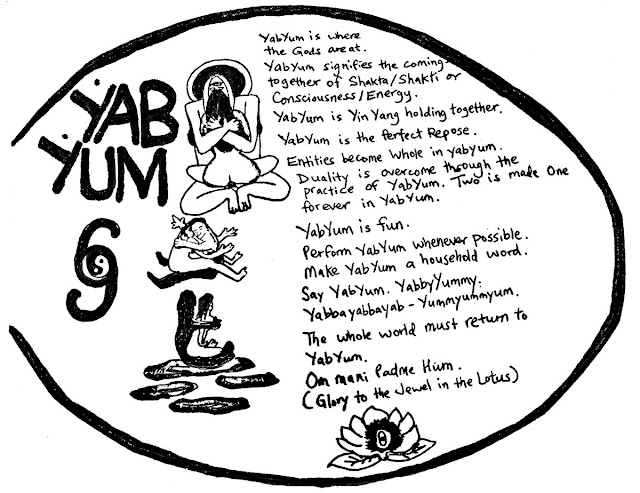 YAB
YUM
YabYum is where
the Gods are at.
YabYum signifies the coming
together of Shakta/Shakti or
Consciousness/Energy.
YabYum is YinYang holding together.
YabYum is the Perfect Repose.
Entities become whole in yabyum.
Duality is overcome through the
practice of YabYum. Two is made One
forever in YabYum.
YabYum is fun.
Perform YabYum whenever possible.
Make YabYum a household word.
Say YabYum. YabbyYummy.
Yabbayabbayab-Yummyummyum.
The whole world must return to
YabYum.
Om mani Padme Hum.
(Glory to the Jewel in the Lotus)